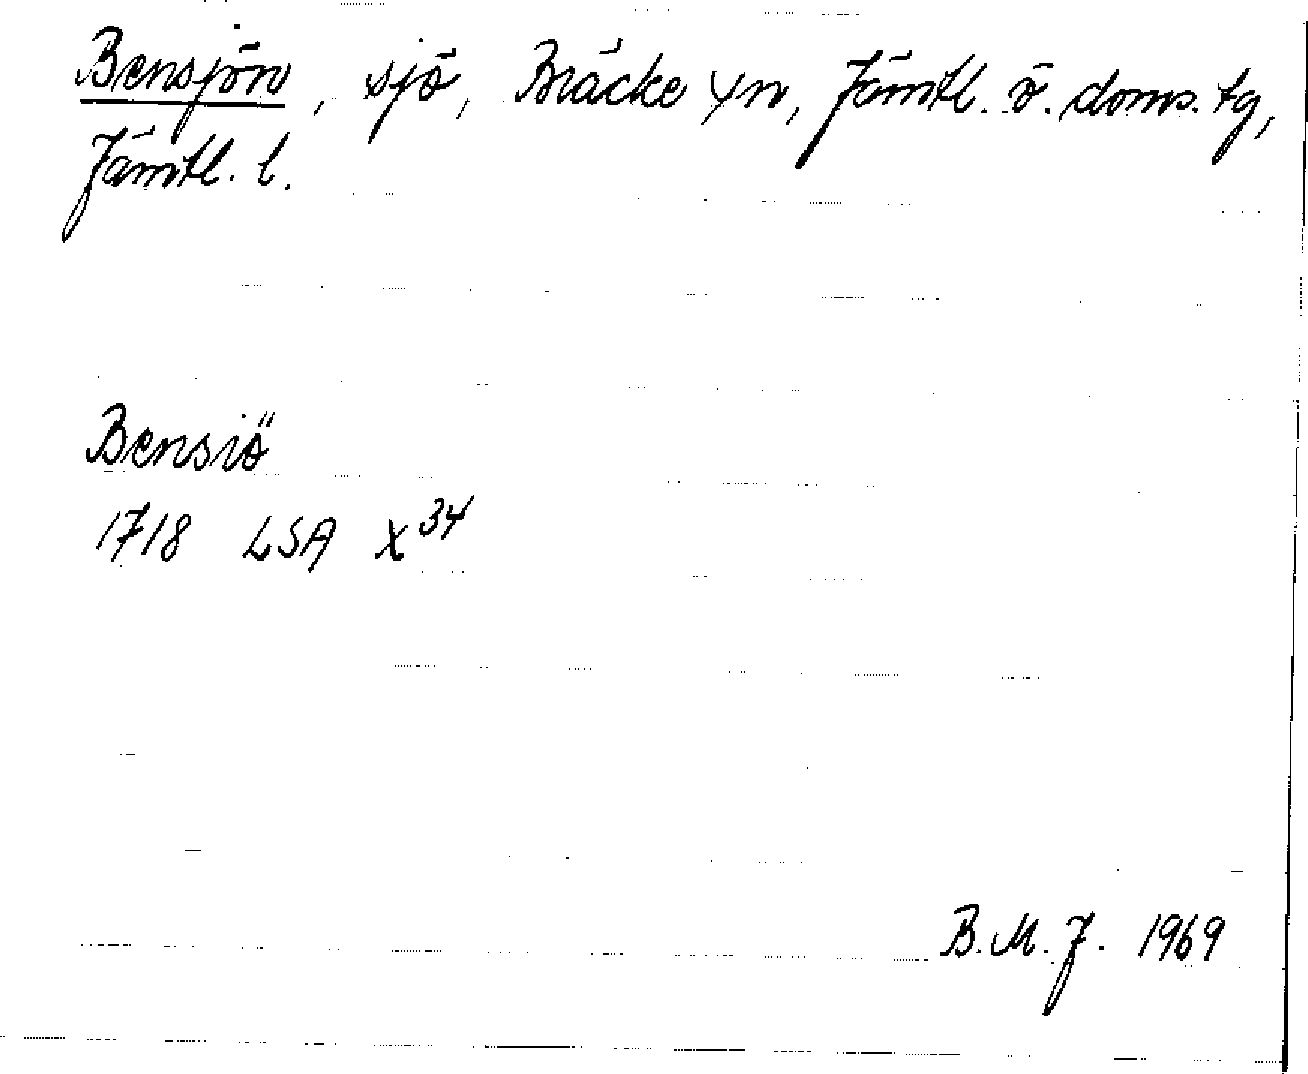 Bensjön, sjö, Bräcke sn, Jämtl. ö. doms. tg,
Jämtl. l.
Bensiö
1718 LSA X34
B.M.J. 1969